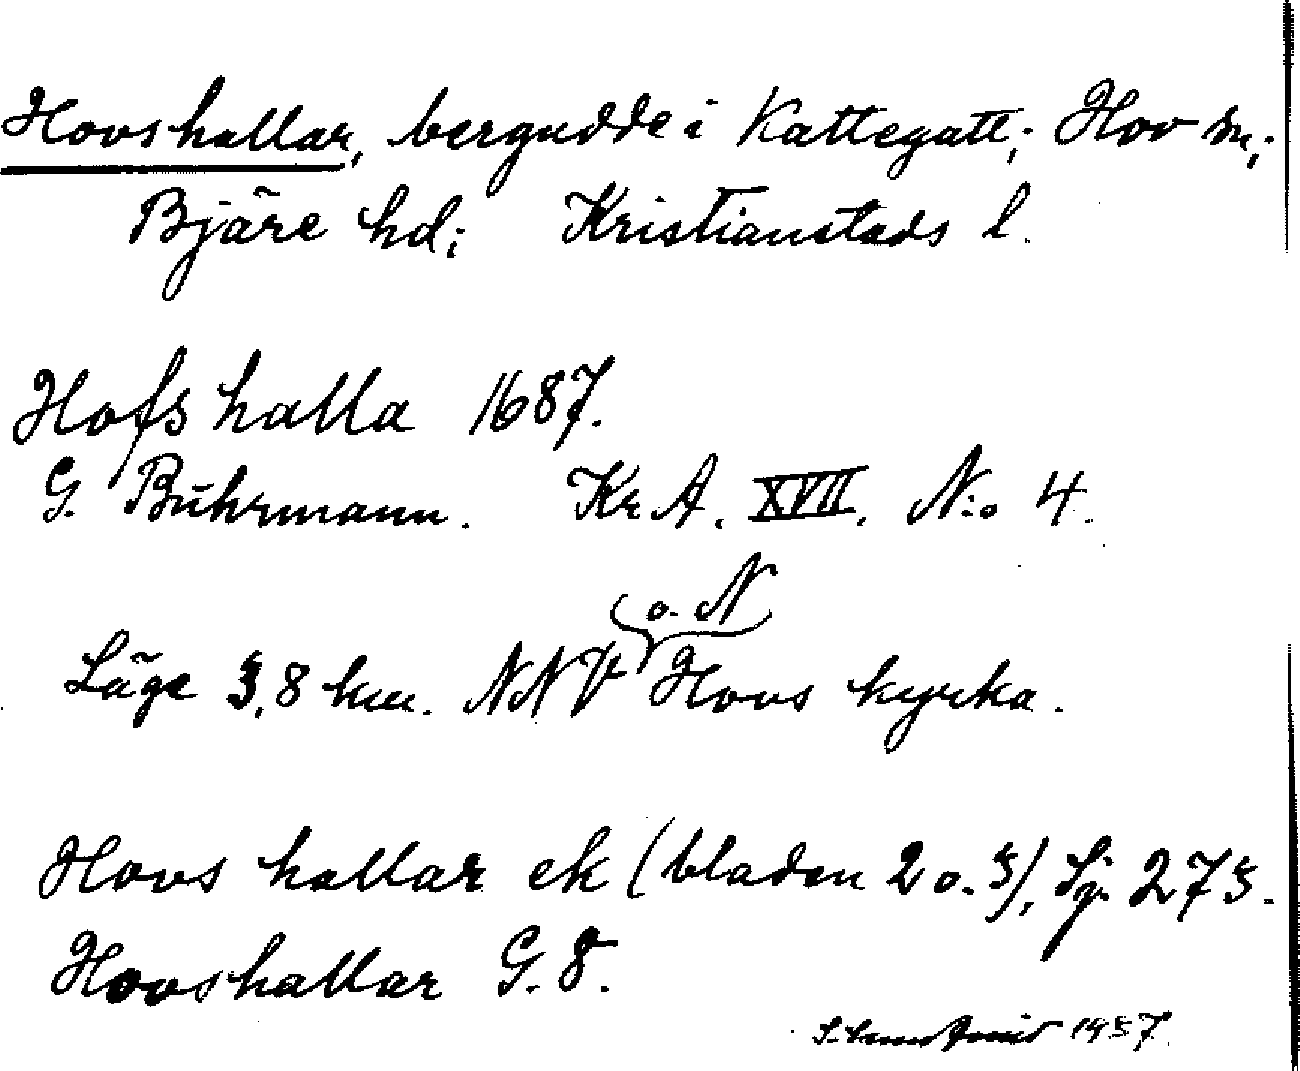 Hovshallar, bergudde i Kattegatt; Hov sn,;
Bjäre hd; Kristianstads l.
Hofs halla 1687.
G. Buhrmann. Kr. A. XVII. N:o 4.
o. N
Läge 3,8 km. NNV Hovs kyrka.
Hovs hallar ek (bladen 2 o. 3), Sjö 273.
Hovshallar G. 8.
1937